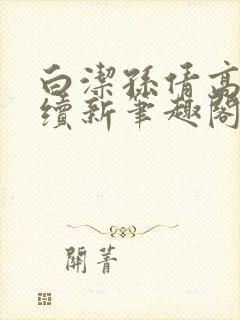 白潔孫倩高
續新筆趣閣
開菁